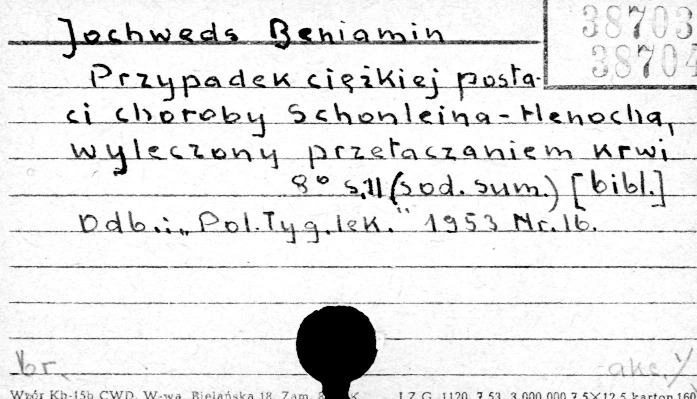 38703
38704
Jochweds Beniamin
Przypadek ciężkiej posta-
ci choroby Schonleina-Henocha,
wyleczony przetaczaniem krwi
8° s.11 (sod. sum.) [bibl.]
Odb.: „Pol. Tyg. lek." 1953 Nr. 16.
br.
akc. y
Wzór Kb-15b CWD. W-wa, Bielańska 18. Zam.
LZG. 1120 7.53 3.000.000 7,5×12,5 karton 160